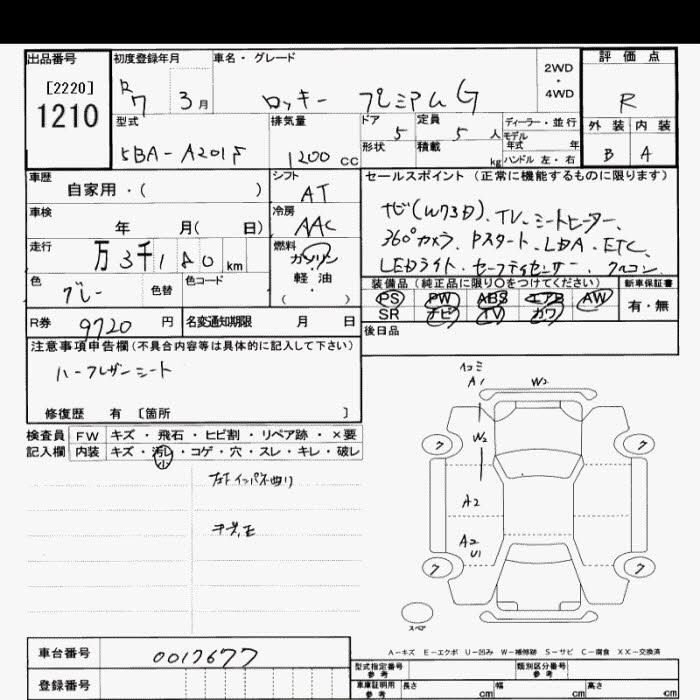 出品番号 初度登録年月 車名・グレード 2WD・4WD 評価点
[2220]
1210
R7 3月 ロッキー プレミアムG R
型式 排気量 ドア 定員 ディーラー・並行 外装 内装
5BA-A201F 1200cc 5 5人 モデル年式 年 B A
形状 積載 kg ハンドル 左・右
車歴 シフト セールスポイント (正常に機能するものに限ります)
自家用・( ) AT
車検 冷房
年 月( 日) AAC
ナビ(W73D)、TV、シートヒーター、
360°カメラ、Pスタート・LDA・ETC
LEDライト・セーフティセンサー、クルコン
走行 燃料
万3千180km ガソリン
軽油・( )
色 色替 色コード
グレー
装備品 (純正品に限り○をつけてください) 新車保証書
PS PW ABS エアB AW 有・無
SR ナビ TV カワ
R券 9720円 名変通知期限 月 日 後日品
注意事項申告欄(不具合内容等は具体的に記入して下さい)
ハーフレザーシート
修復歴 有 〔箇所 〕
検査員 FW キズ・飛石・ヒビ割・リペア跡・×要
記入欄 内装 キズ・汚レ・コゲ・穴・スレ・キレ・破レ
少
左Fインパネ曲り
ヘコミ
A1 W2
W2
A2
A2
U1
ワ ワ
ワ ワ
スペア
A-キズ E-エクボ U-凹み W-補修跡 S-サビ C-腐食 XX-交換済
車台番号 0017677
型式指定番号 参考 類別区分番号 参考
登録番号
車庫証明用 参考 長さ cm 幅 cm 高さ cm